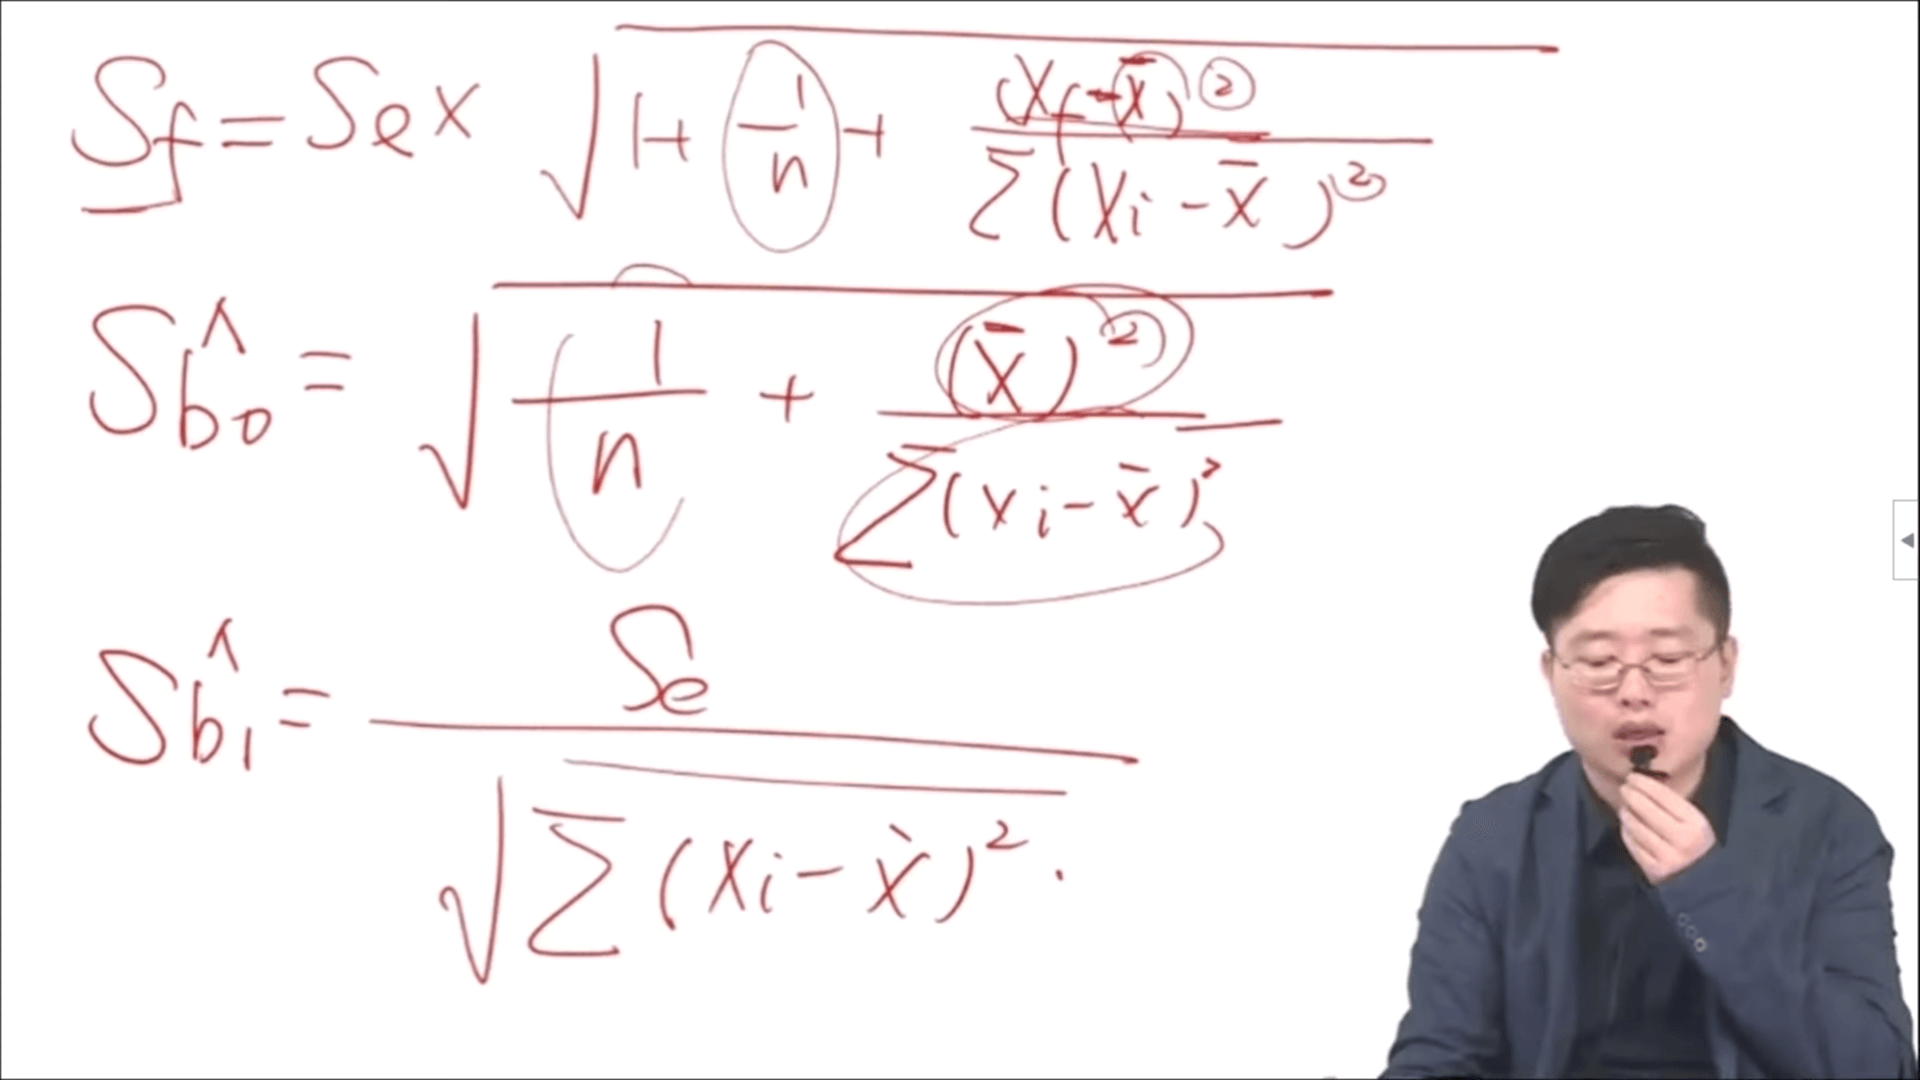 S_f = S_e × √(1 + 1/n + (X_f - X̄)² / Σ(Xi - X̄)²)
S_b̂₀ = √(1/n + (X̄)² / Σ(xi - x̄)²)
S_b̂₁ = S_e / √(Σ(Xi - X̄)²)